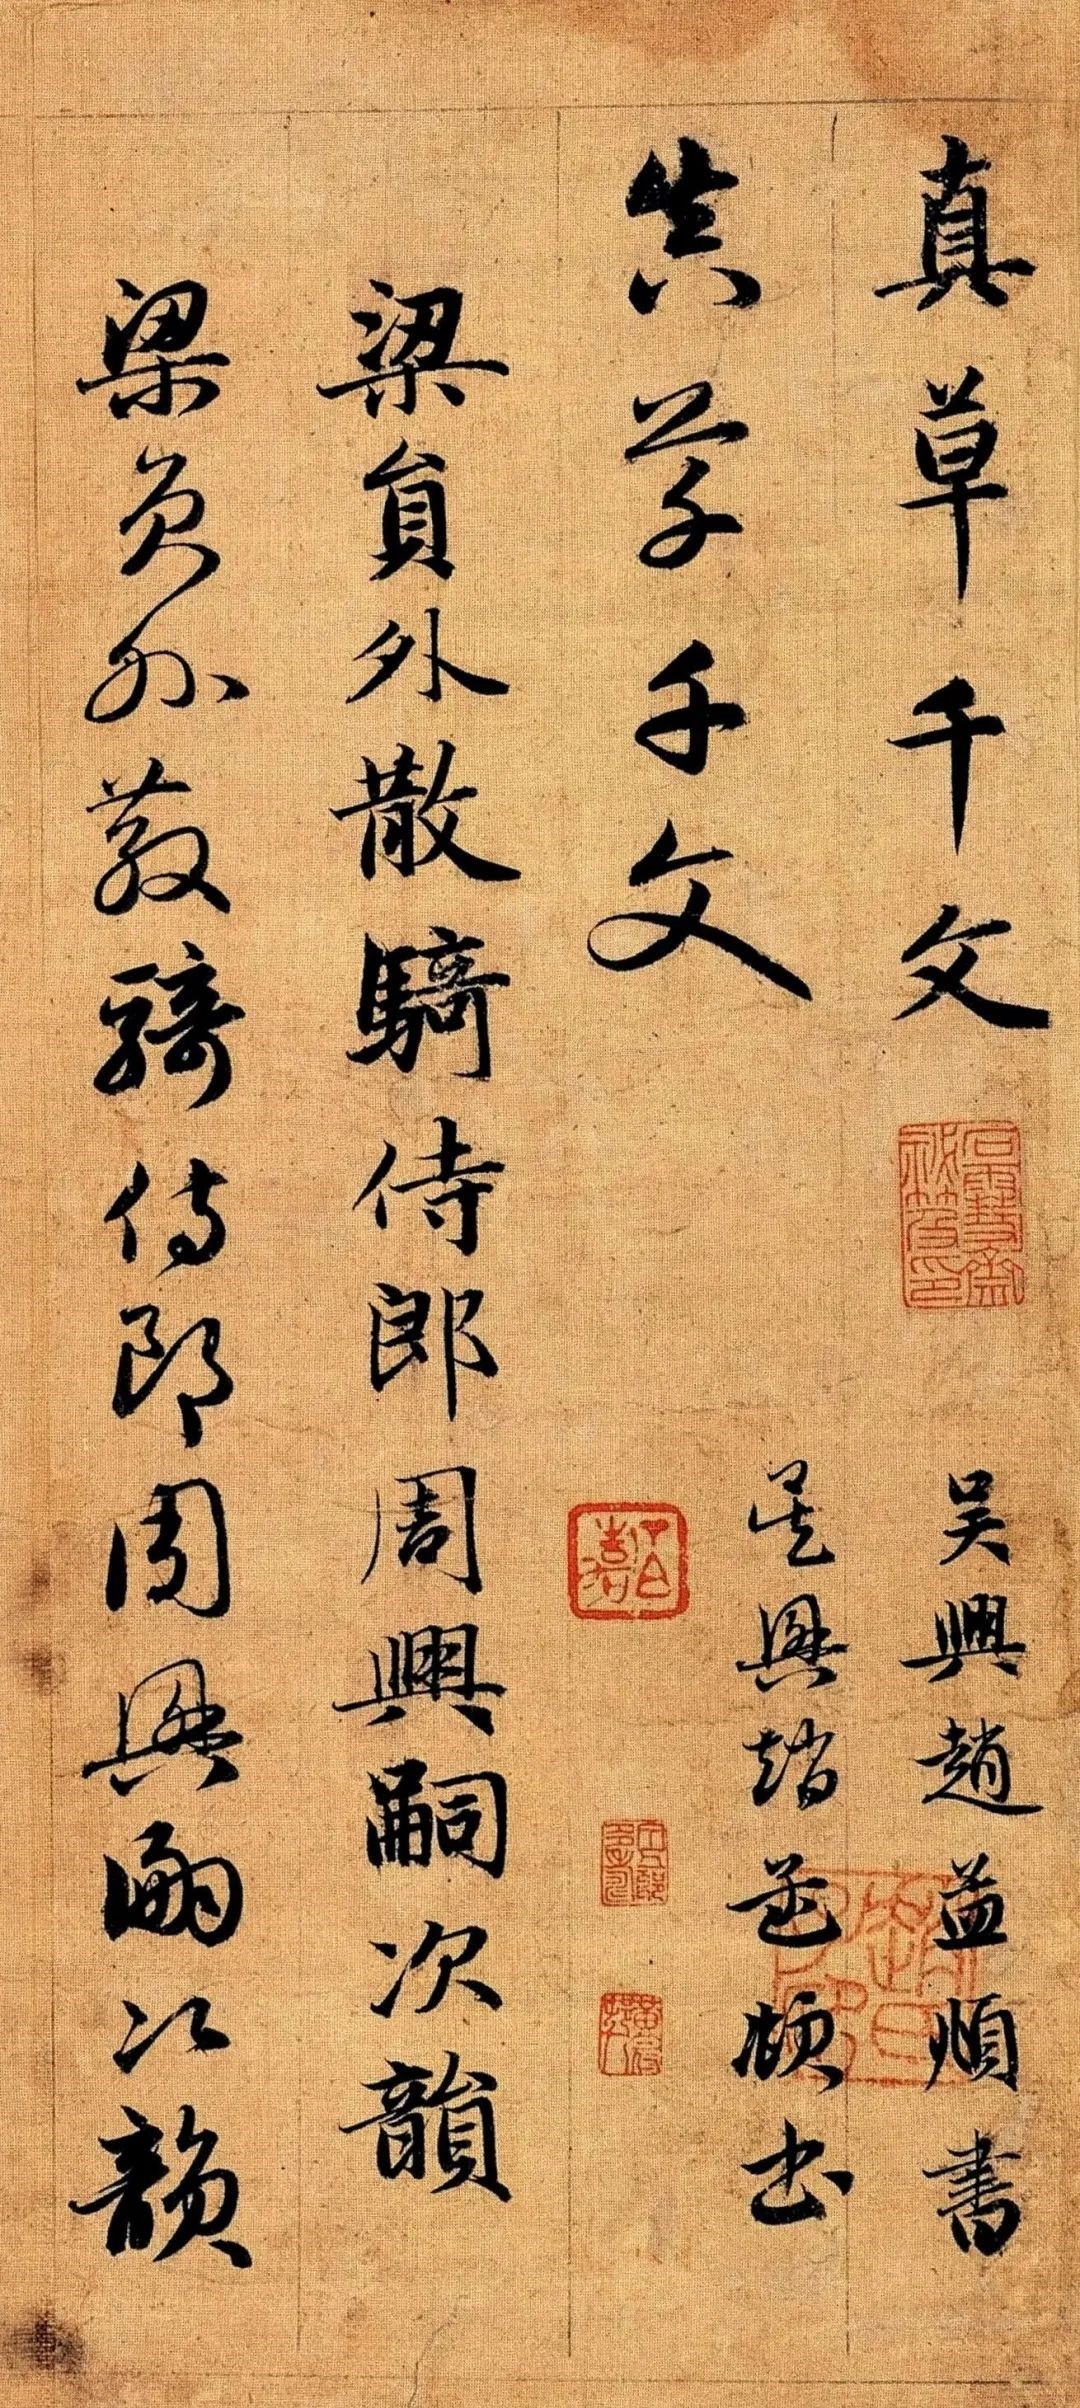 真草千文
吳興趙孟頫書
真草千文
吳興趙孟頫書
梁員外散騎侍郎周興嗣次韻
梁員外散騎侍郎周興嗣次韻